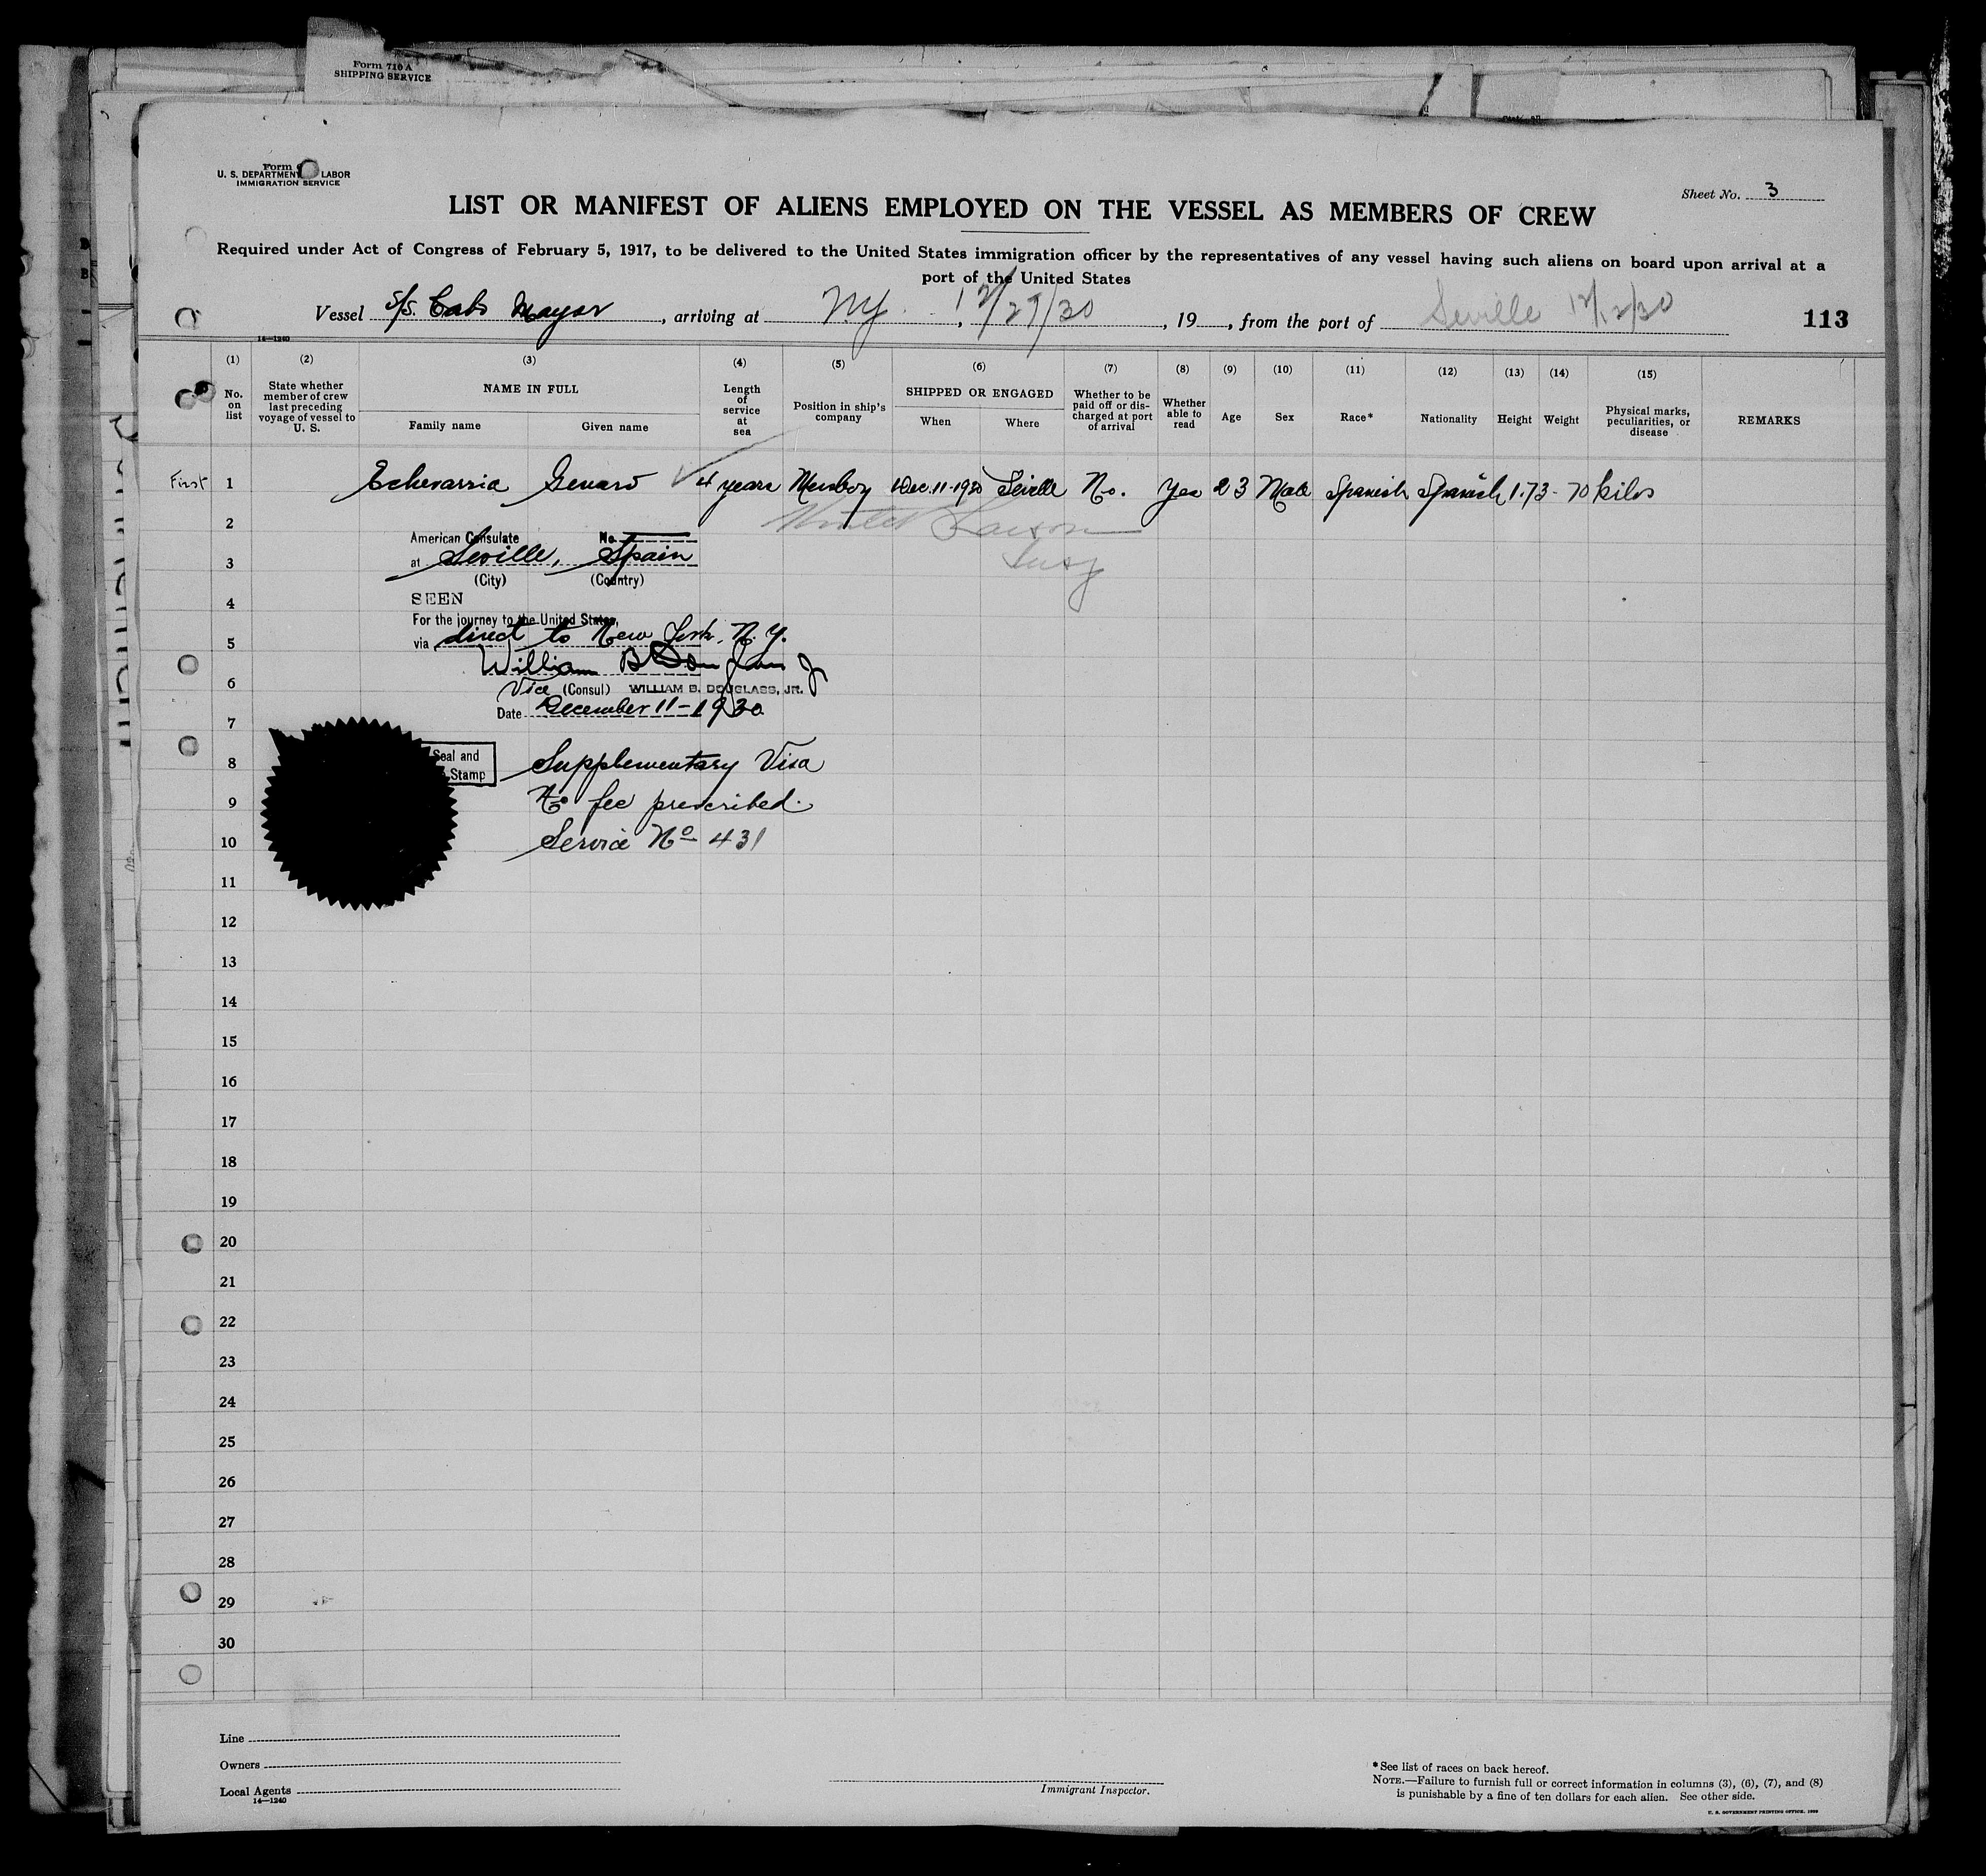 Form 710 A
SHIPPING SERVICE
Form
U. S. DEPARTMENT LABOR
IMMIGRATION SERVICE
Sheet No. 3
LIST OR MANIFEST OF ALIENS EMPLOYED ON THE VESSEL AS MEMBERS OF CREW
Required under Act of Congress of February 5, 1917, to be delivered to the United States immigration officer by the representatives of any vessel having such aliens on board upon arrival at a
port of the United States
Vessel S/S. Cabo Mayor, arriving at NY. 12/27/30, 19, from the port of Seville 12/12/30 113
14—1240
(1) (2) (3) (4) (5) (6) (7) (8) (9) (10) (11) (12) (13) (14) (15)
No. on list
State whether member of crew last preceding voyage of vessel to U. S.
NAME IN FULL
Family name Given name
Length of service at sea
Position in ship's company
SHIPPED OR ENGAGED
When Where
Whether to be paid off or discharged at port of arrival
Whether able to read
Age
Sex
Race*
Nationality
Height
Weight
Physical marks, peculiarities, or disease
REMARKS
First 1 Echevarria Genaro 4 years Messboy Dec. 11-1930 Seville No. Yes 23 Male Spanish Spanish 1.73 - 70 kilos
2
American Consulate No.
3
at Seville, Spain
(City) (Country)
4
SEEN
For the journey to the United States,
5
via direct to New York, N. Y.
William B Douglass Jr
6
Vice (Consul) WILLIAM B. DOUGLASS, JR.
Date December 11-1930
7
Seal and
Stamp
8 Supplementary Visa
9 No fee prescribed.
10 Service No 431
11
12
13
14
15
16
17
18
19
20
21
22
23
24
25
26
27
28
29
30
Line
Owners
Local Agents
14—1240
Immigrant Inspector.
*See list of races on back hereof.
NOTE.—Failure to furnish full or correct information in columns (3), (6), (7), and (8)
is punishable by a fine of ten dollars for each alien. See other side.
U. S. GOVERNMENT PRINTING OFFICE